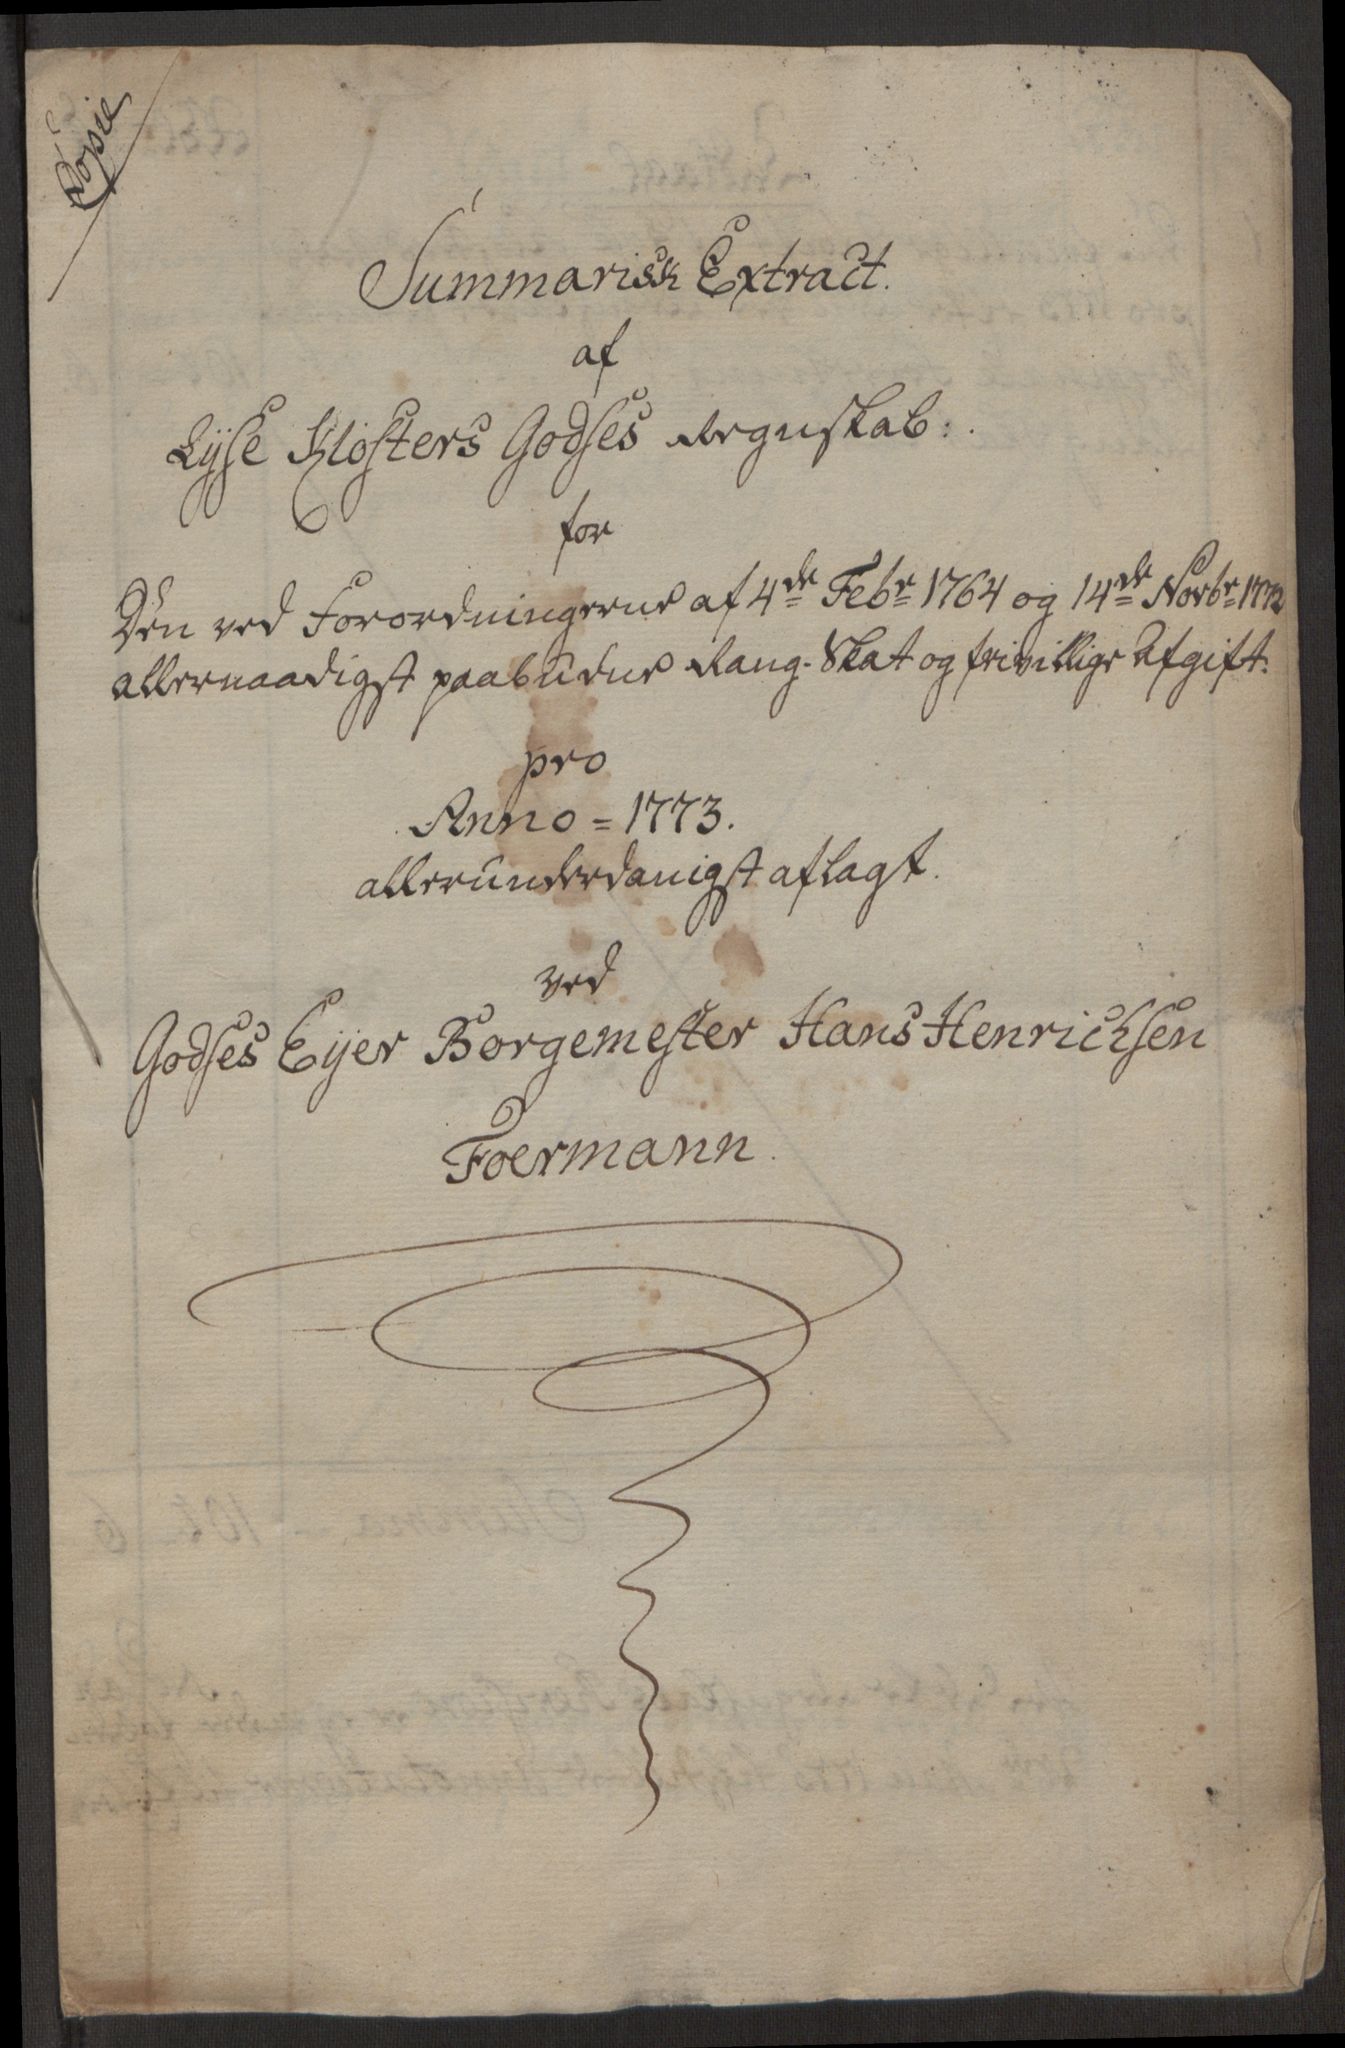 Copie
Summarisk Extract.
af
Lyse Klosters Godses Regnskab:.
for
Den ved Forordningerne af 4de Febr 1764 og 14de Novbr 1772
allernaadigst paabudne Rang-Skat og frivillige Afgift.
pro
Anno = 1773.
allerunderdanigst aflagt.
ved
Godses Eyer Borgemester Hans Henrichsen
Foermann.